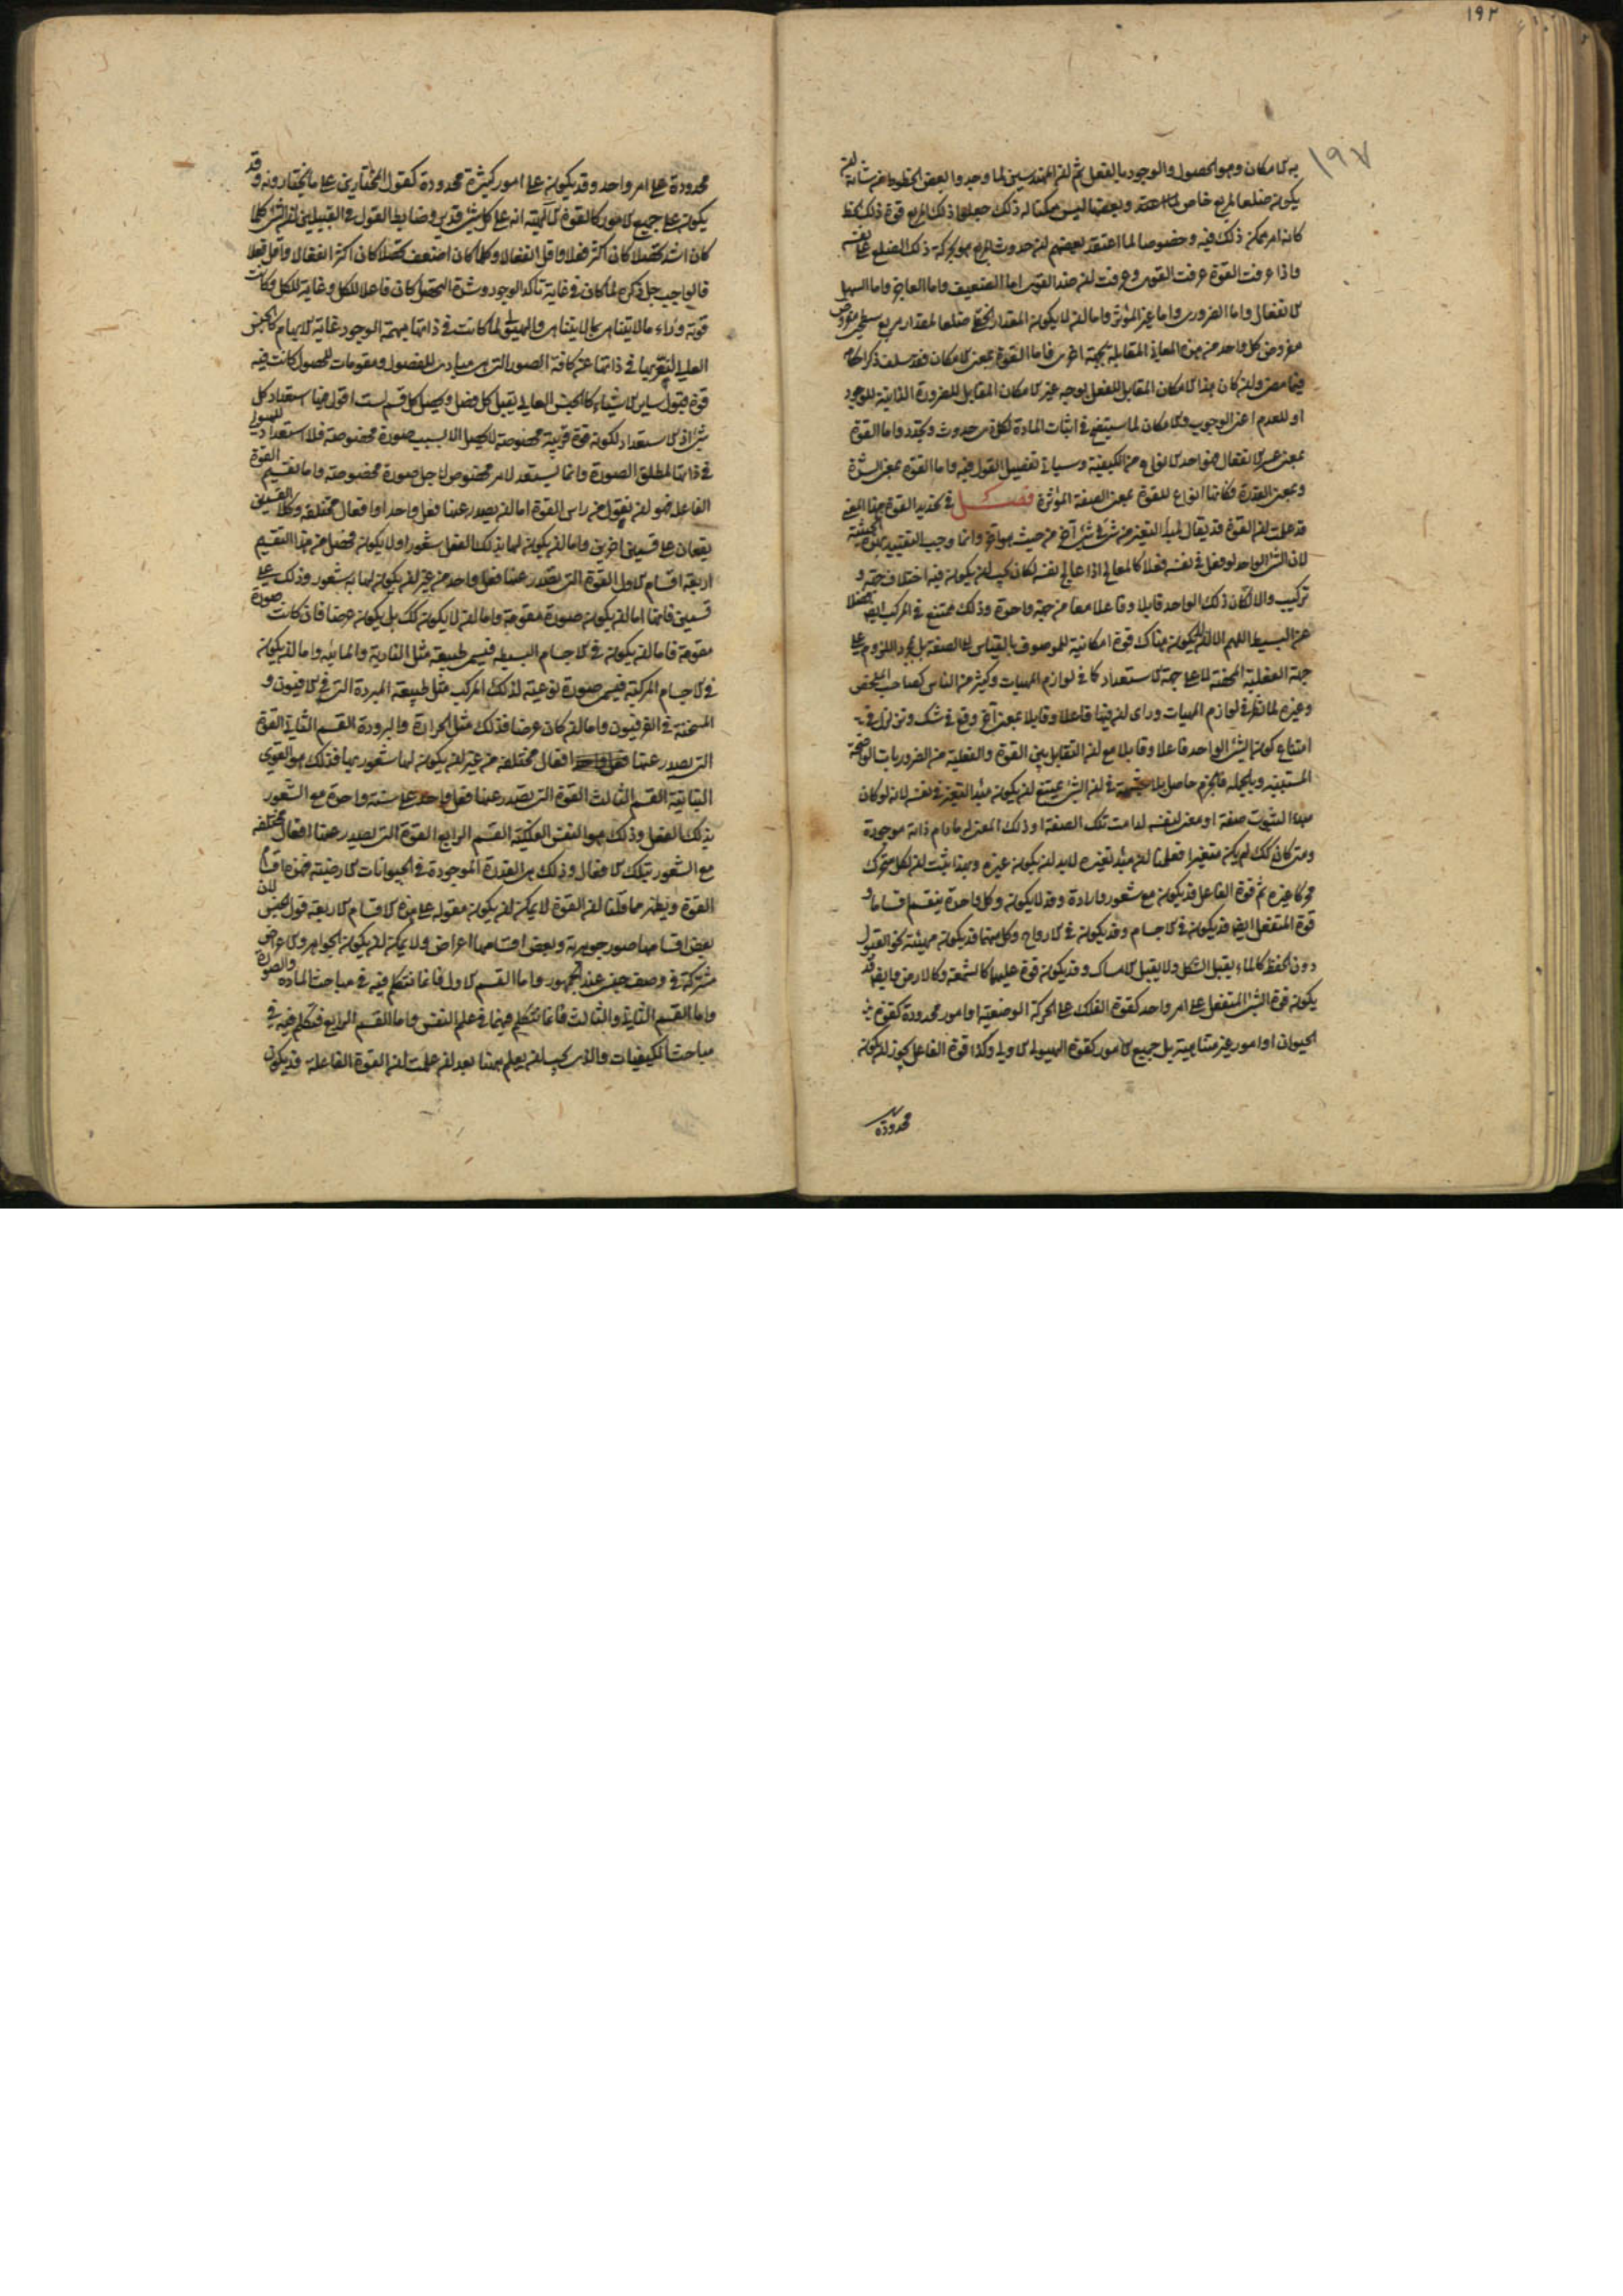 ١٩٢
١٩٧
به الامكان وهو الحصول والوجود بالفعل ثم ان المهندسين لما وجدوا بعض الخطوط من شانه ان
يكون ضلعا لمربع خاص وبعضها ليس ممكنا له ذلك جعلوا ذلك المربع قوة ذلك الخط
كانه امر ممكن ذلك فيه وخصوصا لما اعتقد بعضهم ان حدوث المربع هو بحركة ذلك الضلع على نفسه
واذا عرفت القوة عرفت القوى وعرفت ان ضد القوى اما الضعيف واما العاجز واما السهل
الانفعال واما الضرورى واما غير المؤثر واما ان لا يكون المقدار الخطى ضلعا لمقدار مربع سطحى مفروض
مفروض كل واحد من هذه المعانى المقابلة بجهة اخرى فاما القوة بمعنى الامكان فقد سلف ذكر احكامه
فيما مضى وان كان هذا الامكان المقابل للفعل بوجه غير الامكان المقابل للضرورة الذاتية للوجود
او للعدم اعنى الوجوب والامكان لما سيتضح فى اثبات المادة لكل ذى حدوث وتجدد واما القوة
بمعنى عسر الانفعال فهو احد الانواع من الكيفية وسيأتى تفصيل القول فيه واما القوة بمعنى الشدة
وبمعنى القدرة فكانها انواع للقوة بمعنى الصفة المؤثرة فصل فى تحديد القوة بهذا المعنى
قد علمت ان القوة قد يقال لمبدأ التغير من شئ فى شئ آخر من حيث هو آخر وانما وجب التقييد بهذه الحيثية
لان الشئ الواحد لو فعل فى نفسه فعلا كالمعالج اذا عالج نفسه لكان يجب ان يكون فيه اختلاف جهة و
تركيب والا لكان ذلك الواحد قابلا وفاعلا معا من جهة واحدة وذلك ممتنع فى المركب ايضا فضلا
عن البسيط اللهم الا ان لا يكون هناك قوة امكانية للموصوف بالقياس الى الصفة بل مجرد اللزوم على
جهة الفعلية المحضة لا على جهة الاستعداد كما فى لوازم المهيات وكثير من الناس كصاحب الملخص
وغيره لما نظر فى لوازم المهيات وراى ان فيها فاعلا وقابلا بمعنى آخر وقع فى شك وتزلزل فى
امتناع كون الشئ الواحد فاعلا وقابلا مع ان التقابل بين القوة والفعلية من الضروريات الواضحة
المستبينة وبالجملة فالجزم حاصل بلا شبهة فى ان الشئ يمتنع ان يكون مبدأ التغير فى نفسه لانه لو كان
مبدأ لثبوت صفة او معنى لنفسه لدامت تلك الصفة او ذلك المعنى له ما دام ذاته موجودة
ومتى كان كك لم يكن متغيرا فعلمنا ان مبدأ تغيره لابد ان يكون غيره وبهذا يثبت ان لكل متحرك
محركا غيره ثم قوة الفاعل قد يكون مع شعور وارادة وقد لا يكون وكل واحدة ينقسم اقساما و
قوة المنفعل ايضا قد يكون فى الاجسام وقد يكون فى الارواح وكل منهما قد يكون مهيئة نحو القبول
دون الحفظ كالماء يقبل الشكل ولا يقبل الامساك وقد يكون قوة عليهما كالشمعة وكالارض وايضا قد
يكون قوة الشئ المنفعل على امر واحد كقوة الفلك على الحركة الوضعية او امور محدودة كقوة
الحيوان او امور غير متناهية بل جميع الامور كقوة الهيولى الاولى وكذا قوة الفاعل يجوز ان يكون
محدودة
محدودة على امر واحد وقد يكون على امور كثيرة محدودة كقول المختارين على ما يختارونه وقد
يكون على جميع الامور كالقوة الآلهية انه على كل شئ قدير وضابط القول فى القبيلين ان الشئ كلما
كان اشد تحصلا كان اكثر فعلا واقل انفعالا وكلما كان اضعف تحصلا كان اكثر انفعالا واقل فعلا
فالواجب جل ذكره لما كان فى غاية تاكد الوجود وشدة التحصل كان فاعلا للكل وغاية للكل وكانت
قوته وراء ما لا يتناهى بما لا يتناهى والهيولى لما كانت فى ذاتها مبهمة الوجود غاية الابهام كالجنس
العالى لتعريها فى ذاتها عن كافة الصور التى هى مبادى الفصول ومقومات للحصول كانت فيه
قوة قبول ساير الاشياء كالجنس العالى يقبل كل فصل ويحصل كل قسم لست اقول فيها استعداد كل
شئ اذ الاستعداد لكونه قوة قريبة مخصوصة لا تحصل الا بسبب صورة مخصوصة فلا استعداد للهيولى
فى ذاتها لمطلق الصورة وانما يستعد لامر مخصوص لاجل صورة مخصوصة واما تقسيم القوة
الفاعلة فهو ان نقول من راس القوة اما ان يصدر عنها فعل واحد او افعال مختلفة وكلا القسمين
يقعان على قسمين آخرين واما ان يكون لها بذلك الفعل شعور او لا يكون فحصل من هذا التقسيم
اربعة اقسام الاول القوة التى يصدر عنها فعل واحد من غير ان يكون لها به شعور وذلك على
قسمين فانها اما ان يكون صورة مقومة واما ان لا يكون كك بل يكون عرضا فان كانت صورة
مقومة فاما ان يكون فى الاجسام البسيطة فيسمى طبيعة مثل النارية والمائيه واما ان يكون
فى الاجسام المركبة فيسمى صورة نوعية لذلك المركب مثل طبيعة المبردة التى فى الافيون و
المسخنة فى الفرفيون واما ان كان عرضا فذلك مثل الحرارة والبرودة القسم الثانى القوة
التى يصدر عنها افعال مختلفه من غير ان يكون لها شعور بها فذلك هو القوى
النباتية القسم الثالث القوة التى يصدر عنها فعل واحد على سنة واحدة مع الشعور
بذلك الفعل وذلك هو النفس الفلكية القسم الرابع القوة التى يصدر عنها افعال مختلفه
مع الشعور بتلك الافعال وذلك هى القدرة الموجودة فى الحيوانات الارضية فهذه اقسام
القوة ويظهر مما قلنا ان القوة لا يمكن ان يكون مقوله على هذه الاقسام الاربعة قول الجنس لان
بعض اقسامها صور جوهرية وبعض اقسامها اعراض ولا يمكن ان يكون الجواهر والاعراض
مشتركة فى وصف جنسى عند الجمهور واما القسم الاول فانما نتكلم فيه فى مباحث المادة والصورة
واما القسم الثانى والثالث فانما نتكلم فيهما فى علم النفس واما القسم الرابع فنتكلم فيه فى
مباحث الكيفيات والذى يجب ان يعلم ههنا بعد ان علمت ان القوة الفاعلة قد يكون